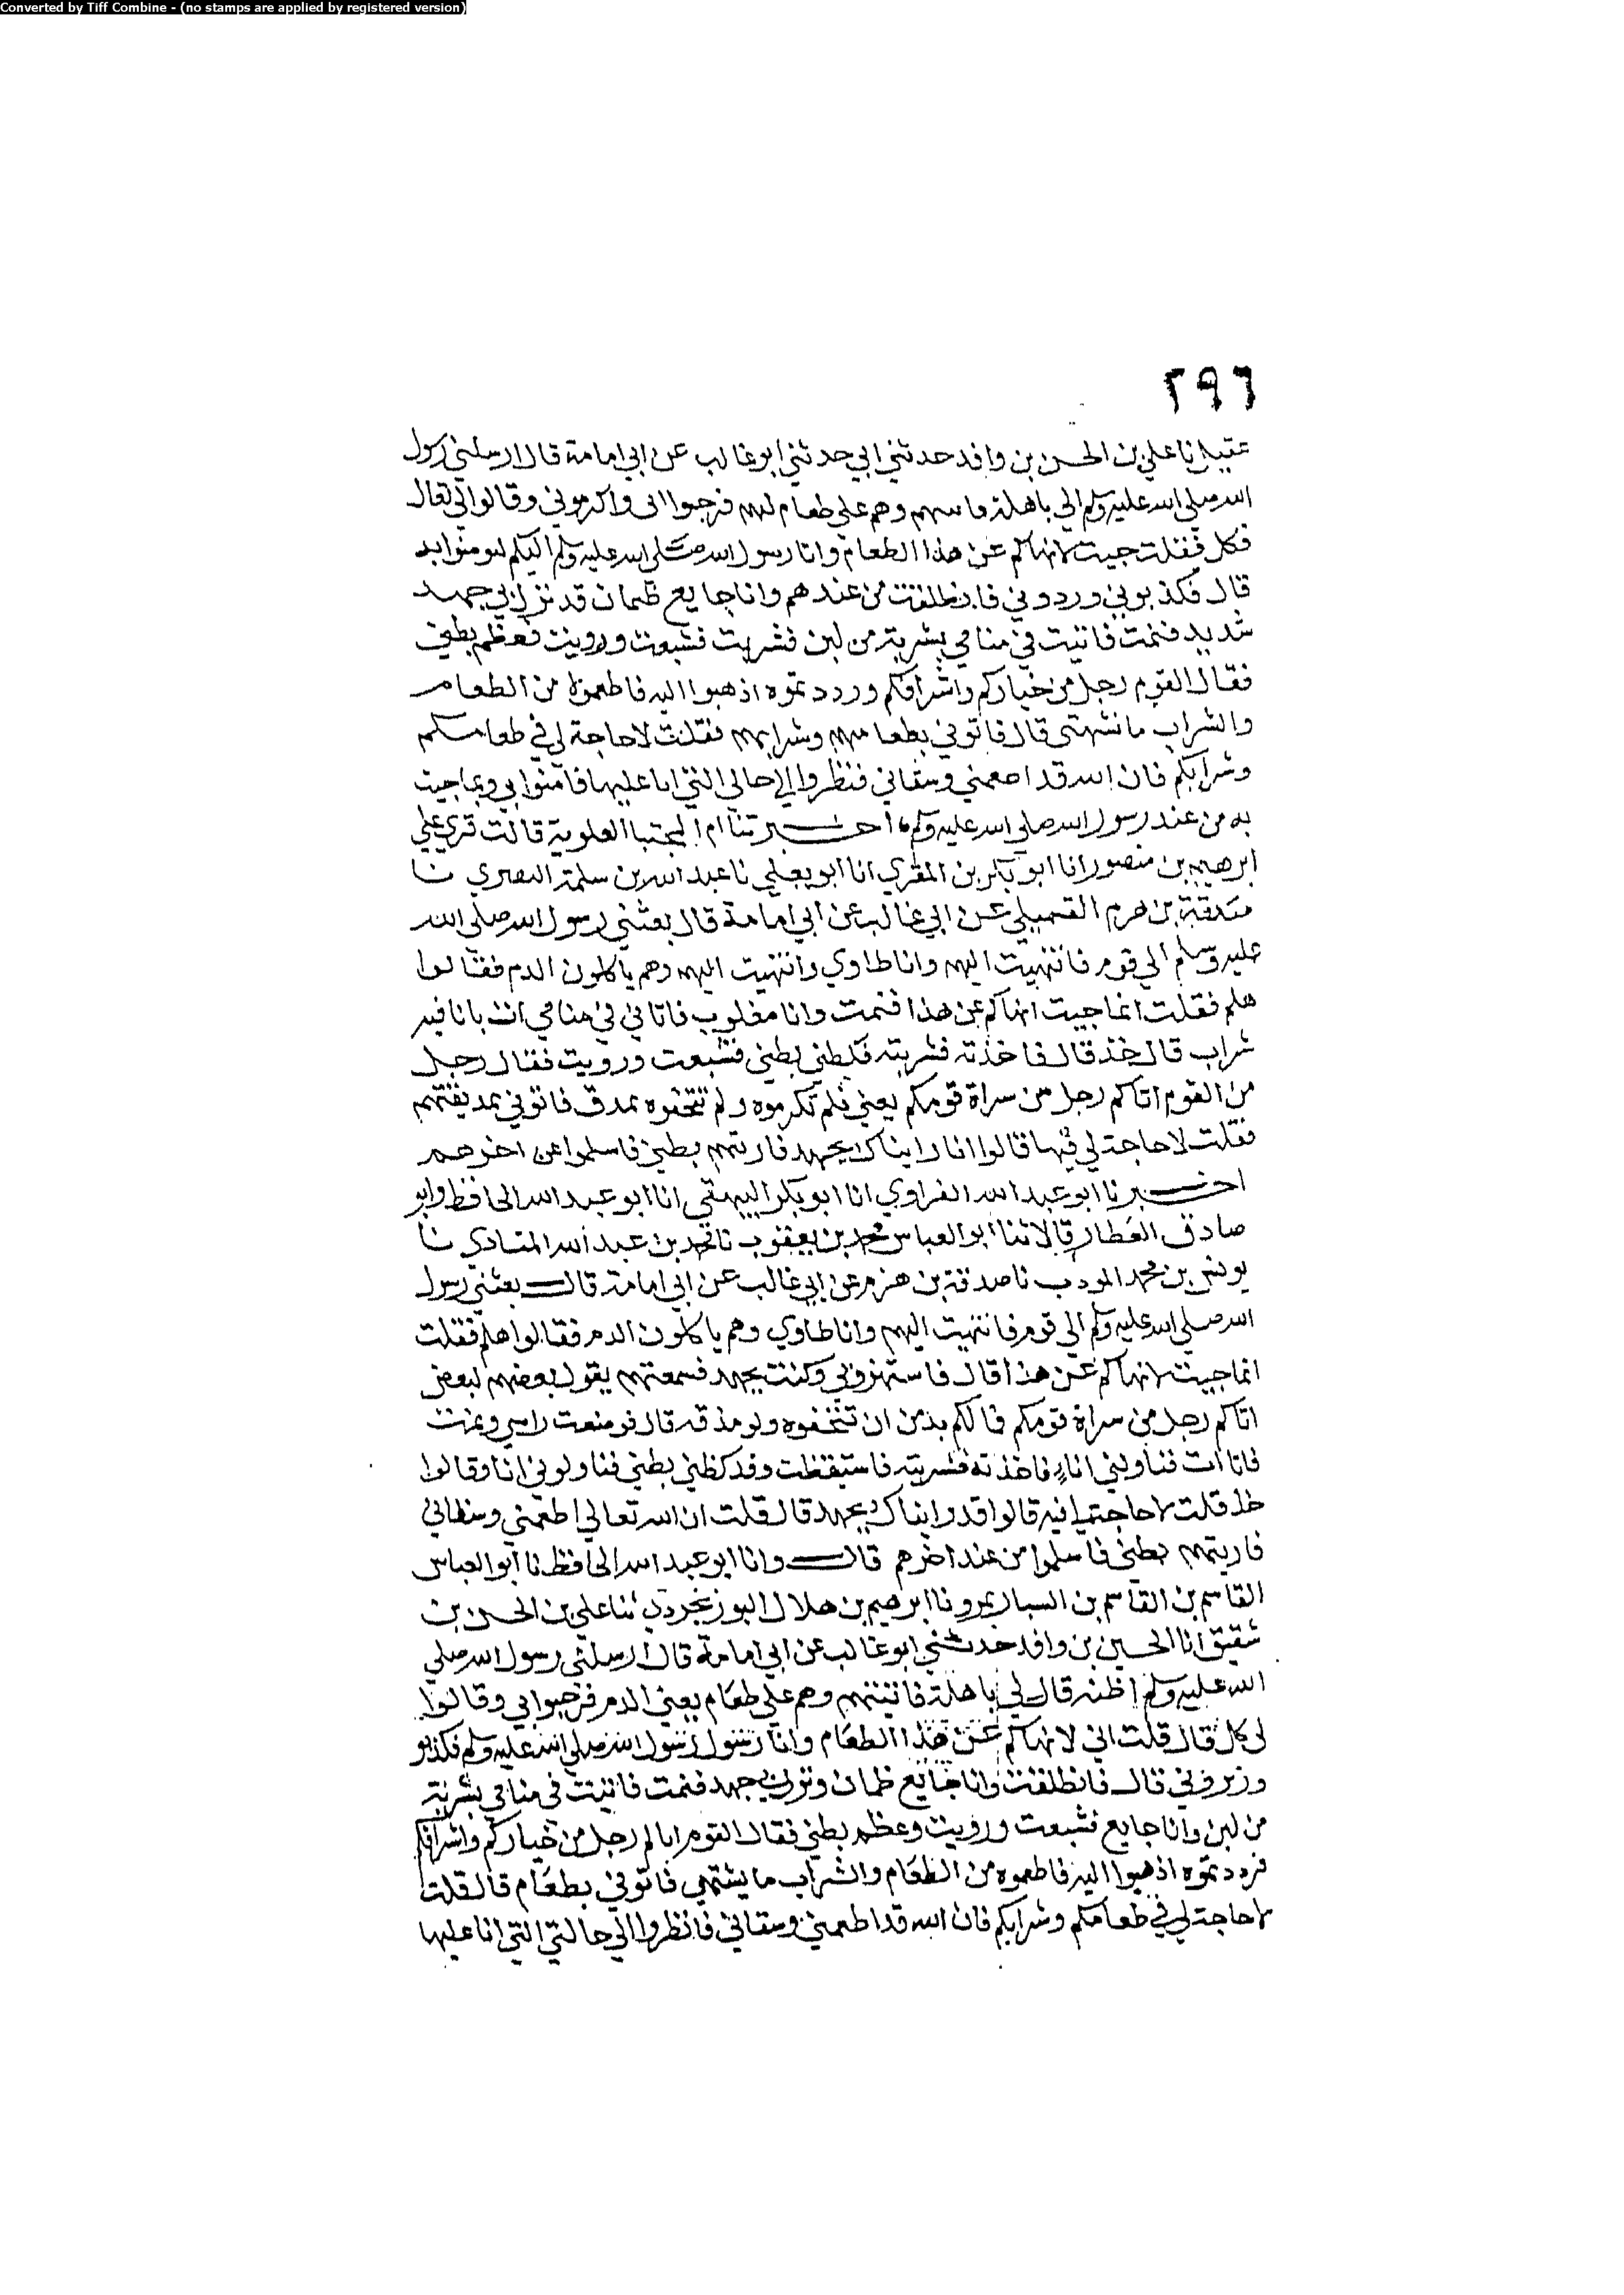 Converted by Tiff Combine - (no stamps are applied by registered version)
٢٩٦
عقيل انا علي بن الحسن بن واقد حدثني ابي حدثني ابو غالب عن ابي امامة قال ارسلني رسول
الله صلى الله عليه وسلم الي باهلة وهم علي طعام لهم فرحبوا بي واكرموني وقالوا لي تعال
فكل فقلت جيت لانهاكم عن هذا الطعام وانا رسول الله صلى الله عليه وسلم اليكم لتومنوا به
قال فكذبوني وردوني فانطلقت من عندهم وانا جايع ظمان قد نزل بي جهد
شديد فنمت فاتيت في منامي بشربة من لبن فشربت فشبعت ورويت فعظم بطني
فقال القوم رجل من خياركم واشرافكم ورددتموه اذهبوا اليه فاطعموه من الطعام
والشراب ما نشتهي قال فاتوني بطعامهم وشرابهم فقلت لا حاجة لي في طعامكم
وشرابكم فان الله قد اطعمني وسقاني فنظروا الي حالي التي انا عليها فامنوا بي وبما جيت
به من عند رسول الله صلي الله عليه وسلم اخبرتنا ام المجتبا العلوية قالت قري علي
ابرهيم بن منصور انا ابو بكر بن المقري انا ابو يعلي نا عبد الله بن سلمة البصري نا
صدقة بن هرم القسميلي عن ابي غالب عن ابي امامة قال بعثني رسول الله صلي الله
عليه وسلم الي قوم فانتهيت اليهم وانا طاوي وانتهيت اليهم وهم ياكلون الدم فقالوا
هلم فقلت انما جيت انهاكم عن هذا فنمت وانا مغلوب فاتاني في منامي ات بانا فيه
شراب قال خذ قال فاخذته فشربته فكظني بطني فشبعت ورويت فقال رجل
من القوم اتاكم رجل من سراة قومكم يعني فلم تكرموه ولم تتحفوه بمدق فاتوني بمديقتهم
فقلت لا حاجة لي فيها قالوا انا رايناك بجهد فاريتهم بطني فاسلموا عن اخرهم
اخبرنا ابو عبد الله الفراوي انا ابو بكر البيهقي انا ابو عبد الله الحافظ وابو
صادق العطار قالا ثنا ابو العباس محمد بن يعقوب نا محمد بن عبد الله المنادي نا
يونس بن محمد المودب نا صدقة بن هرم عن ابي غالب عن ابي امامة قال بعثني رسول
الله صلي الله عليه وسلم الي قوم فانتهيت اليهم وانا طاوي وهم ياكلون الدم فقالوا هلم فقلت
انما جيت لانهاكم عن هذا قال فاستهزوا بي وكنت بجهد فسمعتهم يقول بعضهم لبعض
اتاكم رجل من سراة قومكم فما لكم بد من ان تتحفوه ولو مذقه قال فوضعت راسي ونمت
فاتا ات فناولني اناء فاخذته فشربته فاستيقظت وقد كظني بطني فناولوني انا وقالوا
خذ قلت لا حاجة لي فيه قالوا قد رايناك بجهد قال قلت ان الله تعالي اطعمني وسقاني
فاريتهم بطني فاسلموا من عند اخرهم قال وانا ابو عبد الله الحافظ نا ابو العباس
القاسم بن القاسم بن السياري بمرو نا ابرهيم بن هلال البوزنجردي ثنا علي بن الحسن بن
شقيق انا الحسين بن واقد حدثني ابو غالب عن ابي امامة قال ارسلني رسول الله صلي
الله عليه وسلم اظنه قال لي باهلة فاتيتهم وهم علي طعام يعني الدم فرحبوا بي وقالوا
لي كل قال قلت اني لانهاكم عن هذا الطعام وانا رسول رسول الله صلي الله عليه وسلم فكذبو
وزبروني قال فانطلقت وانا جايع ظمان ونزل بي جهد فنمت فاتيت في منامي بشربة
من لبن وانا جايع فشبعت ورويت وعظم بطني فقال القوم اتاكم رجل من خياركم واشرافكم
فرددتموه اذهبوا اليه فاطعموه من الطعام والشراب ما يشتهي فاتوني بطعام قال قلت
لا حاجة لي في طعامكم وشرابكم فان الله قد اطعمني وسقاني فانظروا الي حالتي التي انا عليها